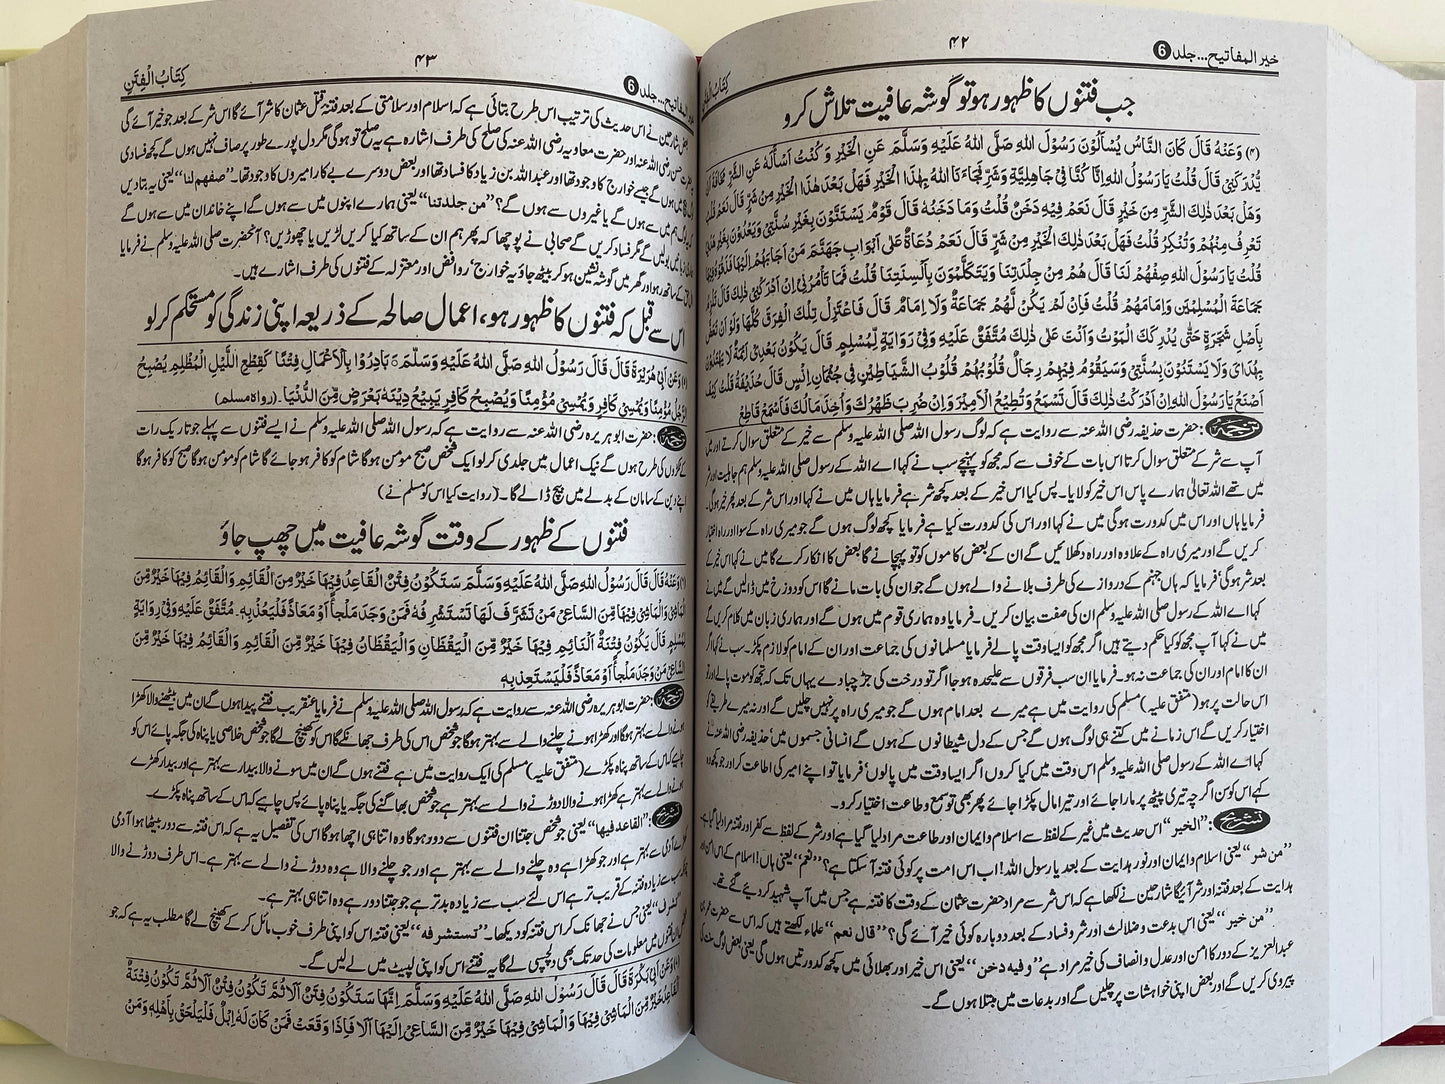 خیر المفاتیح...جلد 6
۴۲
کِتَابُ الْفِتَن
جب فتنوں کا ظہور ہو تو گوشہ عافیت تلاش کرو
(۴) وَعَنْهُ قَالَ كَانَ النَّاسُ يَسْأَلُوْنَ رَسُوْلَ اللهِ صَلَّى اللهُ عَلَيْهِ وَسَلَّمَ عَنِ الْخَيْرِ وَكُنْتُ أَسْأَلُهُ عَنِ الشَّرِّ مَخَافَةَ أَنْ
يُّدْرِكَنِيْ قَالَ قُلْتُ يَا رَسُوْلَ اللهِ اِنَّا كُنَّا فِيْ جَاهِلِيَّةٍ وَشَرٍّ فَجَاءَنَا اللهُ بِهٰذَا الْخَيْرِ فَهَلْ بَعْدَ هٰذَا الْخَيْرِ مِنْ شَرٍّ قَالَ نَعَمْ قُلْتُ
وَهَلْ بَعْدَ ذٰلِكَ الشَّرِّ مِنْ خَيْرٍ قَالَ نَعَمْ فِيْهِ دَخَنٌ قُلْتُ وَمَا دَخَنُهُ قَالَ قَوْمٌ يَسْتَنُّوْنَ بِغَيْرِ سُنَّتِيْ وَيَهْدُوْنَ بِغَيْرِ هَدْيِيْ
تَعْرِفُ مِنْهُمْ وَتُنْكِرُ قُلْتُ فَهَلْ بَعْدَ ذٰلِكَ الْخَيْرِ مِنْ شَرٍّ قَالَ نَعَمْ دُعَاةٌ عَلٰى أَبْوَابِ جَهَنَّمَ مَنْ أَجَابَهُمْ اِلَيْهَا قَذَفُوْهُ فِيْهَا
قُلْتُ يَا رَسُوْلَ اللهِ صِفْهُمْ لَنَا قَالَ هُمْ مِنْ جِلْدَتِنَا وَيَتَكَلَّمُوْنَ بِأَلْسِنَتِنَا قُلْتُ فَمَا تَأْمُرُنِيْ اِنْ اَدْرَكَنِيْ ذٰلِكَ قَالَ تَلْزَمُ
جَمَاعَةَ الْمُسْلِمِيْنَ وَاِمَامَهُمْ قُلْتُ فَاِنْ لَمْ يَكُنْ لَّهُمْ جَمَاعَةٌ وَلَا اِمَامٌ قَالَ فَاعْتَزِلْ تِلْكَ الْفِرَقَ كُلَّهَا وَلَوْ اَنْ تَعَضَّ
بِاَصْلِ شَجَرَةٍ حَتّٰى يُدْرِكَكَ الْمَوْتُ وَاَنْتَ عَلٰى ذٰلِكَ مُتَّفَقٌ عَلَيْهِ وَفِيْ رِوَايَةٍ لِّمُسْلِمٍ قَالَ يَكُوْنُ بَعْدِيْ اَئِمَّةٌ لَا يَهْتَدُوْنَ
بِهُدَايَ وَلَا يَسْتَنُّوْنَ بِسُنَّتِيْ وَسَيَقُوْمُ فِيْهِمْ رِجَالٌ قُلُوْبُهُمْ قُلُوْبُ الشَّيَاطِيْنِ فِيْ جُثْمَانِ اِنْسٍ قَالَ حُذَيْفَةُ قُلْتُ كَيْفَ
اَصْنَعُ يَا رَسُوْلَ اللهِ اِنْ اَدْرَكْتُ ذٰلِكَ قَالَ تَسْمَعُ وَتُطِيْعُ الْاَمِيْرَ وَاِنْ ضُرِبَ ظَهْرُكَ وَاُخِذَ مَالُكَ فَاسْمَعْ وَاَطِعْ
ترجمہ: حضرت حذیفہ رضی اللہ عنہ سے روایت ہے کہ لوگ رسول اللہ صلی اللہ علیہ وسلم سے خیر کے متعلق سوال کرتے اور میں
آپ سے شر کے متعلق سوال کرتا اس بات کے خوف سے کہ مجھ کو پہنچے سب نے کہا اے اللہ کے رسول صلی اللہ علیہ وسلم ہم جاہلیت اور شر
میں تھے اللہ تعالیٰ ہمارے پاس اس خیر کو لایا۔ پس کیا اس خیر کے بعد کچھ شر ہے فرمایا ہاں میں نے کہا اور اس شر کے بعد پھر خیر ہوگی۔
فرمایا ہاں اور اس میں کدورت ہوگی میں نے کہا اور اس کی کدورت کیا ہے فرمایا کچھ لوگ ہوں گے جو میری راہ کے سوا اور راہ اختیار
کریں گے اور میری راہ کے علاوہ اور راہ دکھلائیں گے ان کے بعض کاموں کو تو پہچانے گا بعض کا انکار کرے گا میں نے کہا اس خیر کے
بعد شر ہوگی؟ فرمایا کہ ہاں جہنم کے دروازے کی طرف بلانے والے ہوں گے جو ان کی بات مانے گا اس کو دوزخ میں ڈالیں گے میں نے
کہا اے اللہ کے رسول صلی اللہ علیہ وسلم ان کی صفت بیان کریں۔ فرمایا وہ ہماری قوم میں ہوں گے اور ہماری زبان میں کلام کریں گے
میں نے کہا آپ مجھ کو کیا حکم دیتے ہیں اگر مجھ کو ایسا وقت پالے فرمایا مسلمانوں کی جماعت اور ان کے امام کو لازم پکڑ۔ سب نے کہا اگر
ان کا امام اور ان کی جماعت نہ ہو۔ فرمایا ان سب فرقوں سے علیحدہ ہو جا اگر تو درخت کی جڑ چبا دے یہاں تک کہ تجھ کو موت پالے اور تو
اس حالت پر ہو (متفق علیہ) مسلم کی روایت میں ہے میرے بعد امام ہوں گے جو میری راہ پر نہیں چلیں گے اور نہ میرے طریقے کو
اختیار کریں گے اس زمانے میں کتنے ہی لوگ ہوں گے جس کے دل شیطانوں کے ہوں گے انسانی جسموں میں، حذیفہ رضی اللہ عنہ نے
کہا اے اللہ کے رسول صلی اللہ علیہ وسلم اس وقت میں کیا کروں اگر ایسا وقت میں پالوں، فرمایا تو اپنے امیر کی اطاعت کر اور جو کچھ وہ
کہے اس کو سن اگرچہ تیری پیٹھ پر مارا جائے اور تیرا مال پکڑا جائے پھر بھی تو سمع و طاعت اختیار کرو۔
تشریح: "الخیر" اس حدیث میں خیر کے لفظ سے اسلام و ایمان اور طاعت مراد لیا گیا ہے اور شر کے لفظ سے کفر اور فتنہ مراد لیا گیا ہے۔
"من شر" یعنی اسلام و ایمان اور نور ہدایت کے بعد یا رسول اللہ! اب اس امت پر کوئی فتنہ آسکتا ہے؟ "نعم" یعنی ہاں! اسلام کے اس امن اور
ہدایت کے بعد فتنہ اور شر آئیگا شارحین نے لکھا ہے کہ اس شر سے مراد حضرت عثمان کے وقت کا فتنہ ہے جس میں آپ شہید کر دیئے گئے تھے۔
"من خیر" یعنی اس بدعت و ضلالت اور شر و فساد کے بعد دوبارہ کوئی خیر آئے گی؟ "قال نعم" علماء لکھتے ہیں کہ اس سے حضرت عمر بن
عبدالعزیز کے دور کا امن اور عدل و انصاف کی خیر مراد ہے "وفیہ دخن" یعنی اس خیر اور بھلائی میں کچھ کدورتیں ہوں گی یعنی بعض لوگ سنت کی
پیروی کریں گے اور بعض اپنی خواہشات پر چلیں گے اور بدعات میں مبتلا ہوں گے۔
المفاتیح...جلد 6
۴۳
کِتَابُ الْفِتَنِ
بعض شارحین نے اس حدیث کی ترتیب اس طرح بتائی ہے کہ اسلام اور سلامتی کے بعد فتنہ قتل عثمان کا شر آئے گا اس شر کے بعد جو خیر آئے گی
حضرت حسن رضی اللہ عنہ اور حضرت معاویہ رضی اللہ عنہ کی صلح کی طرف اشارہ ہے یہ صلح تو ہوگی مگر دل پورے طور پر صاف نہیں ہوں گے کچھ فسادی
میں ہوں گے جیسے خوارج کا وجود تھا اور عبداللہ بن زیاد کا فساد تھا اور بعض دوسرے بے کار امیروں کا وجود تھا۔ "صفهم لنا" یعنی یہ بتا دیں
لوگ ہم میں سے ہوں گے یا غیروں سے ہوں گے؟ "من جلدتنا" یعنی ہمارے اپنوں میں سے ہوں گے اپنے خاندان میں سے ہوں گے
ہماری زبان میں بولیں گے مگر فساد کریں گے صحابی نے پوچھا کہ پھر ہم ان کے ساتھ کیا کریں لڑیں یا چھوڑیں؟ آنحضرت صلی اللہ علیہ وسلم نے فرمایا
کے ساتھ رہو اور گھر میں گوشہ نشین ہو کر بیٹھ جاؤ یہ خوارج، روافض اور معتزلہ کے فتنوں کی طرف اشارے ہیں۔
اس سے قبل کہ فتنوں کا ظہور ہو، اعمال صالحہ کے ذریعہ اپنی زندگی کو مستحکم کر لو
(۵) وَعَنْ اَبِيْ هُرَيْرَةَ قَالَ قَالَ رَسُوْلُ اللهِ صَلَّى اللهُ عَلَيْهِ وَسَلَّمَ بَادِرُوْا بِالْاَعْمَالِ فِتَنًا كَقِطَعِ اللَّيْلِ الْمُظْلِمِ يُصْبِحُ
الرَّجُلُ مُؤْمِنًا وَيُمْسِيْ كَافِرٍ وَيُمْسِيْ مُؤْمِنًا وَيُصْبِحُ كَافِرٍ يَبِيْعُ دِيْنَهٗ بِعَرَضٍ مِّنَ الدُّنْيَا۔ (رواہ مسلم)
ترجمہ: حضرت ابو ہریرہ رضی اللہ عنہ سے روایت ہے کہ رسول اللہ صلی اللہ علیہ وسلم نے ایسے فتنوں سے پہلے جو تاریک رات
کے ٹکڑوں کی طرح ہوں گے نیک اعمال میں جلدی کر لو ایک شخص صبح مومن ہوگا شام کو کافر ہو جائے گا شام کو مومن ہوگا صبح کو کافر ہوگا
اپنے دین کے سامان کے بدلے میں بیچ ڈالے گا۔ (روایت کیا اس کو مسلم نے)
فتنوں کے ظہور کے وقت گوشہ عافیت میں چھپ جاؤ
(۶) وَعَنْهُ قَالَ قَالَ رَسُوْلُ اللهِ صَلَّى اللهُ عَلَيْهِ وَسَلَّمَ سَتَكُوْنُ فِتَنٌ الْقَاعِدُ فِيْهَا خَيْرٌ مِنَ الْقَائِمِ وَالْقَائِمُ فِيْهَا خَيْرٌ مِّنَ
الْمَاشِيْ وَالْمَاشِيْ فِيْهَا خَيْرٌ مِّنَ السَّاعِيْ مَنْ تَشَرَّفَ لَهَا تَسْتَشْرِفُهُ فَمَنْ وَجَدَ مَلْجَأً اَوْ مَعَاذً فَلْيَعُذْ بِهِ۔ مُتَّفَقٌ عَلَيْهِ وَفِيْ رِوَايَةٍ
لِمُسْلِمٍ قَالَ يَكُوْنُ فِتْنَةٌ اَلنَّائِمِ فِيْهَا خَيْرٌ مِّنَ الْيَقْظَانِ وَالْيَقْظَانُ فِيْهَا خَيْرٌ مِّنَ الْقَائِمِ وَالْقَائِمُ فِيْهَا خَيْرٌ مِّنَ
السَّاعِيْ فَمَنْ وَجَدَ مَلْجَأً اَوْ مَعَاذً فَلْيَسْتَعِذْ بِهٖ
ترجمہ: حضرت ابو ہریرہ رضی اللہ عنہ سے روایت ہے کہ رسول اللہ صلی اللہ علیہ وسلم نے فرمایا عنقریب فتنے پیدا ہوں گے ان میں بیٹھنے والا کھڑا
ہونے والے سے بہتر ہوگا اور کھڑا ہونے چلنے والے سے بہتر ہوگا جو شخص اس کی طرف جھانکے گا اس کو کھینچ لے گا جو شخص خلاصی یا پناہ کی جگہ پائے اس کو
چاہیے کہ اس کے ساتھ پناہ پکڑے (متفق علیہ) مسلم کی ایک روایت میں ہے فتنے ہوں گے ان میں سونے والا بیدار سے بہتر ہے اور بیدار کھڑے
ہونے والے سے بہتر ہے کھڑا ہونے والا دوڑنے والے سے بہتر ہے جو شخص بھاگنے کی جگہ یا پناہ پائے پس چاہیے کہ اس کے ساتھ پناہ پکڑے۔
تشریح: "القاعد فيها" یعنی جو شخص جتنا ان فتنوں سے دور ہوگا وہ اتنا ہی اچھا ہوگا اس کی تفصیل یہ ہے کہ اس فتنہ سے دور بیٹھا ہوا آدمی
کھڑے آدمی سے بہتر ہے اور جو کھڑا ہے وہ چلنے والے سے بہتر ہے اور جو چلنے والا ہے وہ دوڑنے والے سے بہتر ہے۔ اس طرف دوڑنے والا
سب سے زیادہ فتنہ کے قریب تر ہے اس لئے سب سے زیادہ بدتر ہے جو جتنا دور ہے وہ اتنا ہی بہتر ہے۔
"تشرف" یعنی جس نے جھانک کر اس فتنہ کو دیکھا۔ "تستشرفه" یعنی فتنہ اس کو اپنی طرف خوب مائل کر کے کھینچ لے گا مطلب یہ ہے کہ جو
ان فتنوں میں معلومات کی حد تک بھی دلچسپی لے گا یہ فتنے اس کو اپنی لپیٹ میں لے لیں گے۔
وَعَنْ اَبِيْ بَكْرَةَ قَالَ قَالَ رَسُوْلُ اللهِ صَلَّى اللهُ عَلَيْهِ وَسَلَّمَ اِنَّهَا سَتَكُوْنُ فِتَنٌ اَلَا ثُمَّ تَكُوْنُ فِتَنٌ اَلَا ثُمَّ تَكُوْنُ فِتْنَةٌ
اَلْقَاعِدُ خَيْرٌ مِّنَ الْمَاشِيْ فِيْهَا وَالْمَاشِيْ فِيْهَا خَيْرٌ مِّنَ السَّاعِيْ اِلَيْهَا اَلَا فَاِذَا وَقَعَتْ فَمَنْ كَانَ لَهٗ اِبِلٌ فَلْيَلْحَقْ بِاِبِلِهٖ وَمَنْ